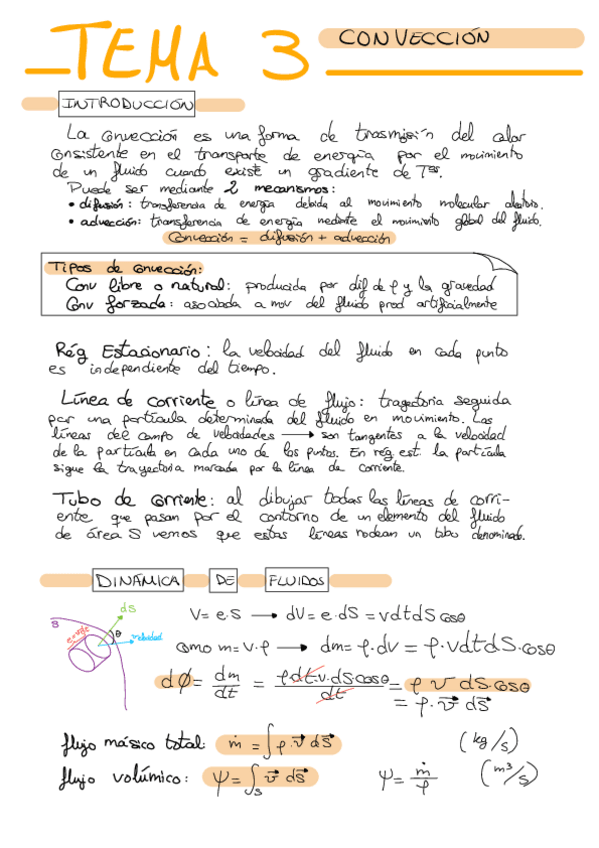 TEMA 3 CONVECCIÓN
INTRODUCCIÓN
La convección es una forma de trasmisión del calor
consistente en el transporte de energía por el movimiento
de un fluido cuando existe un gradiente de Tªs.
Puede ser mediante 2 mecanismos:
• difusión: transferencia de energía debida al movimiento molecular aleatorio.
• advección: transferencia de energía mediante el movimiento global del fluido.
Convección = difusión + advección
Tipos de convección:
Conv libre o natural: producida por dif de ρ y la gravedad
Conv forzada: asociada a mov del fluido prod artificialmente
Rég Estacionario: la velocidad del fluido en cada punto
es independiente del tiempo.
Línea de corriente o línea de flujo: tragectoria seguida
por una partícula determinada del fluido en movimiento. Las
líneas del campo de velocidades → son tangentes a la velocidad
de la partícula en cada uno de los puntos. En rég est. la partícula
sigue la trayectoria marcada por la línea de corriente.
Tubo de corriente: al dibujar todas las líneas de corri-
ente que pasan por el contorno de un elemento del fluido
de área S vemos que estas líneas rodean un tubo denominado.
DINÁMICA DE FLUIDOS
dS
S
e=vdt
θ
velocidad
V= e·S → dV= e·dS = vdtdS cosθ
como m= V·ρ → dm= ρ·dV = ρ·vdtdS·cosθ
dϕ = dm/dt = ρ·dt·v·dS·cosθ/dt = ρ v dS·cosθ
= ρ·v⃗ dS⃗
flujo másico total: ṁ = ∫ρ·v⃗ dS⃗ (kg/s)
flujo volúmico: Ψ = ∫_S v⃗ dS⃗ Ψ = ṁ/ρ (m³/s)